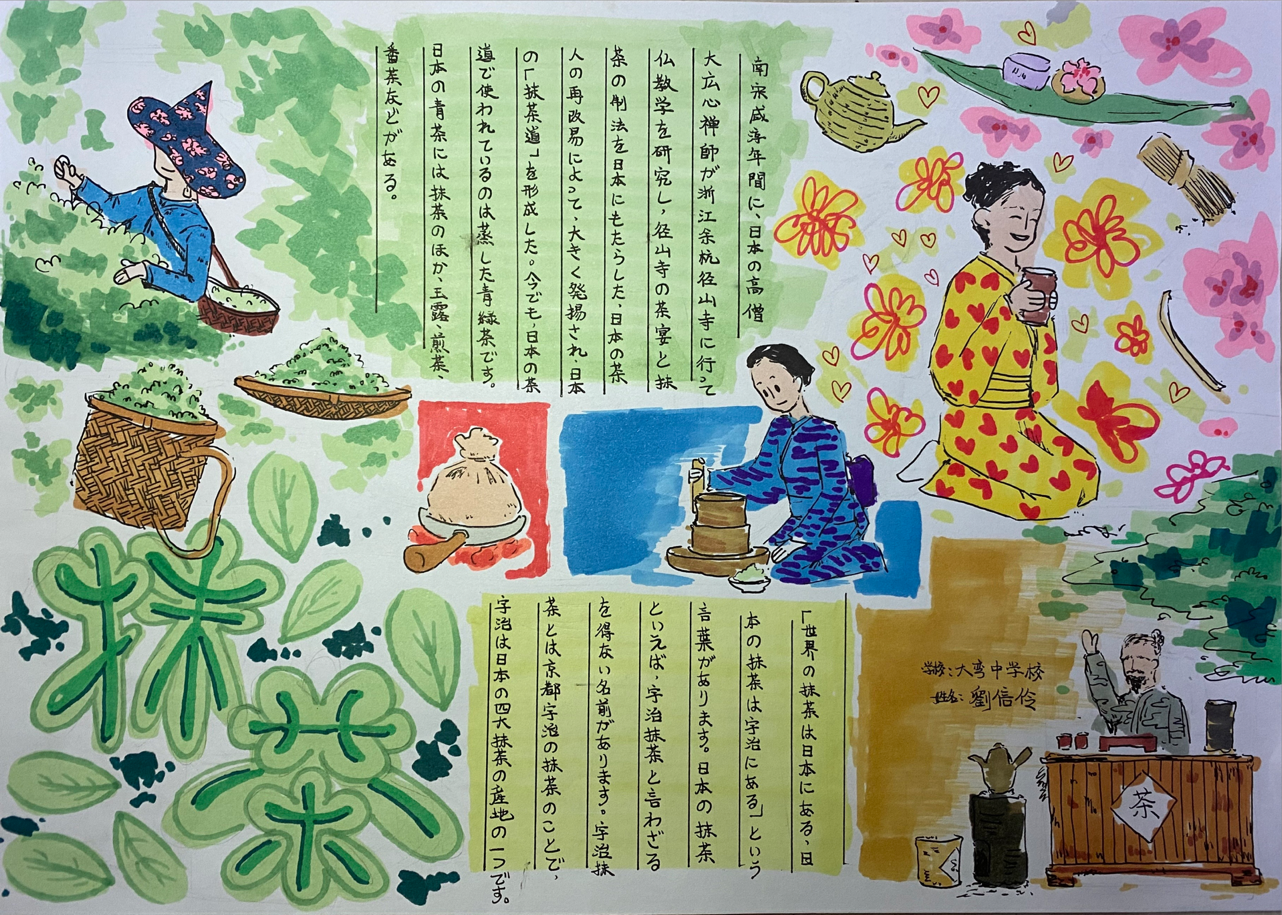 南宋咸淳年間に、日本の高僧
大広心禅師が浙江余杭径山寺に行って
仏教学を研究し、径山寺の茶宴と抹
茶の制法を日本にもたらした、日本の茶
人の再改易によって、大きく発揚され、日本
の「抹茶道」を形成した。今でも、日本の茶
道で使われているのは蒸した青緑茶です。
日本の青茶には抹茶のほか、玉露、煎茶、
番茶などがある。
抹
茶
「世界の抹茶は日本にある、日
本の抹茶は宇治にある」という
言葉があります。日本の抹茶
といえば、宇治抹茶と言わざる
を得ない名前があります。宇治抹
茶とは京都宇治の抹茶のことで、
宇治は日本の四大抹茶の産地の一つです。
学校:大湾中学校
姓名:劉信伶
茶